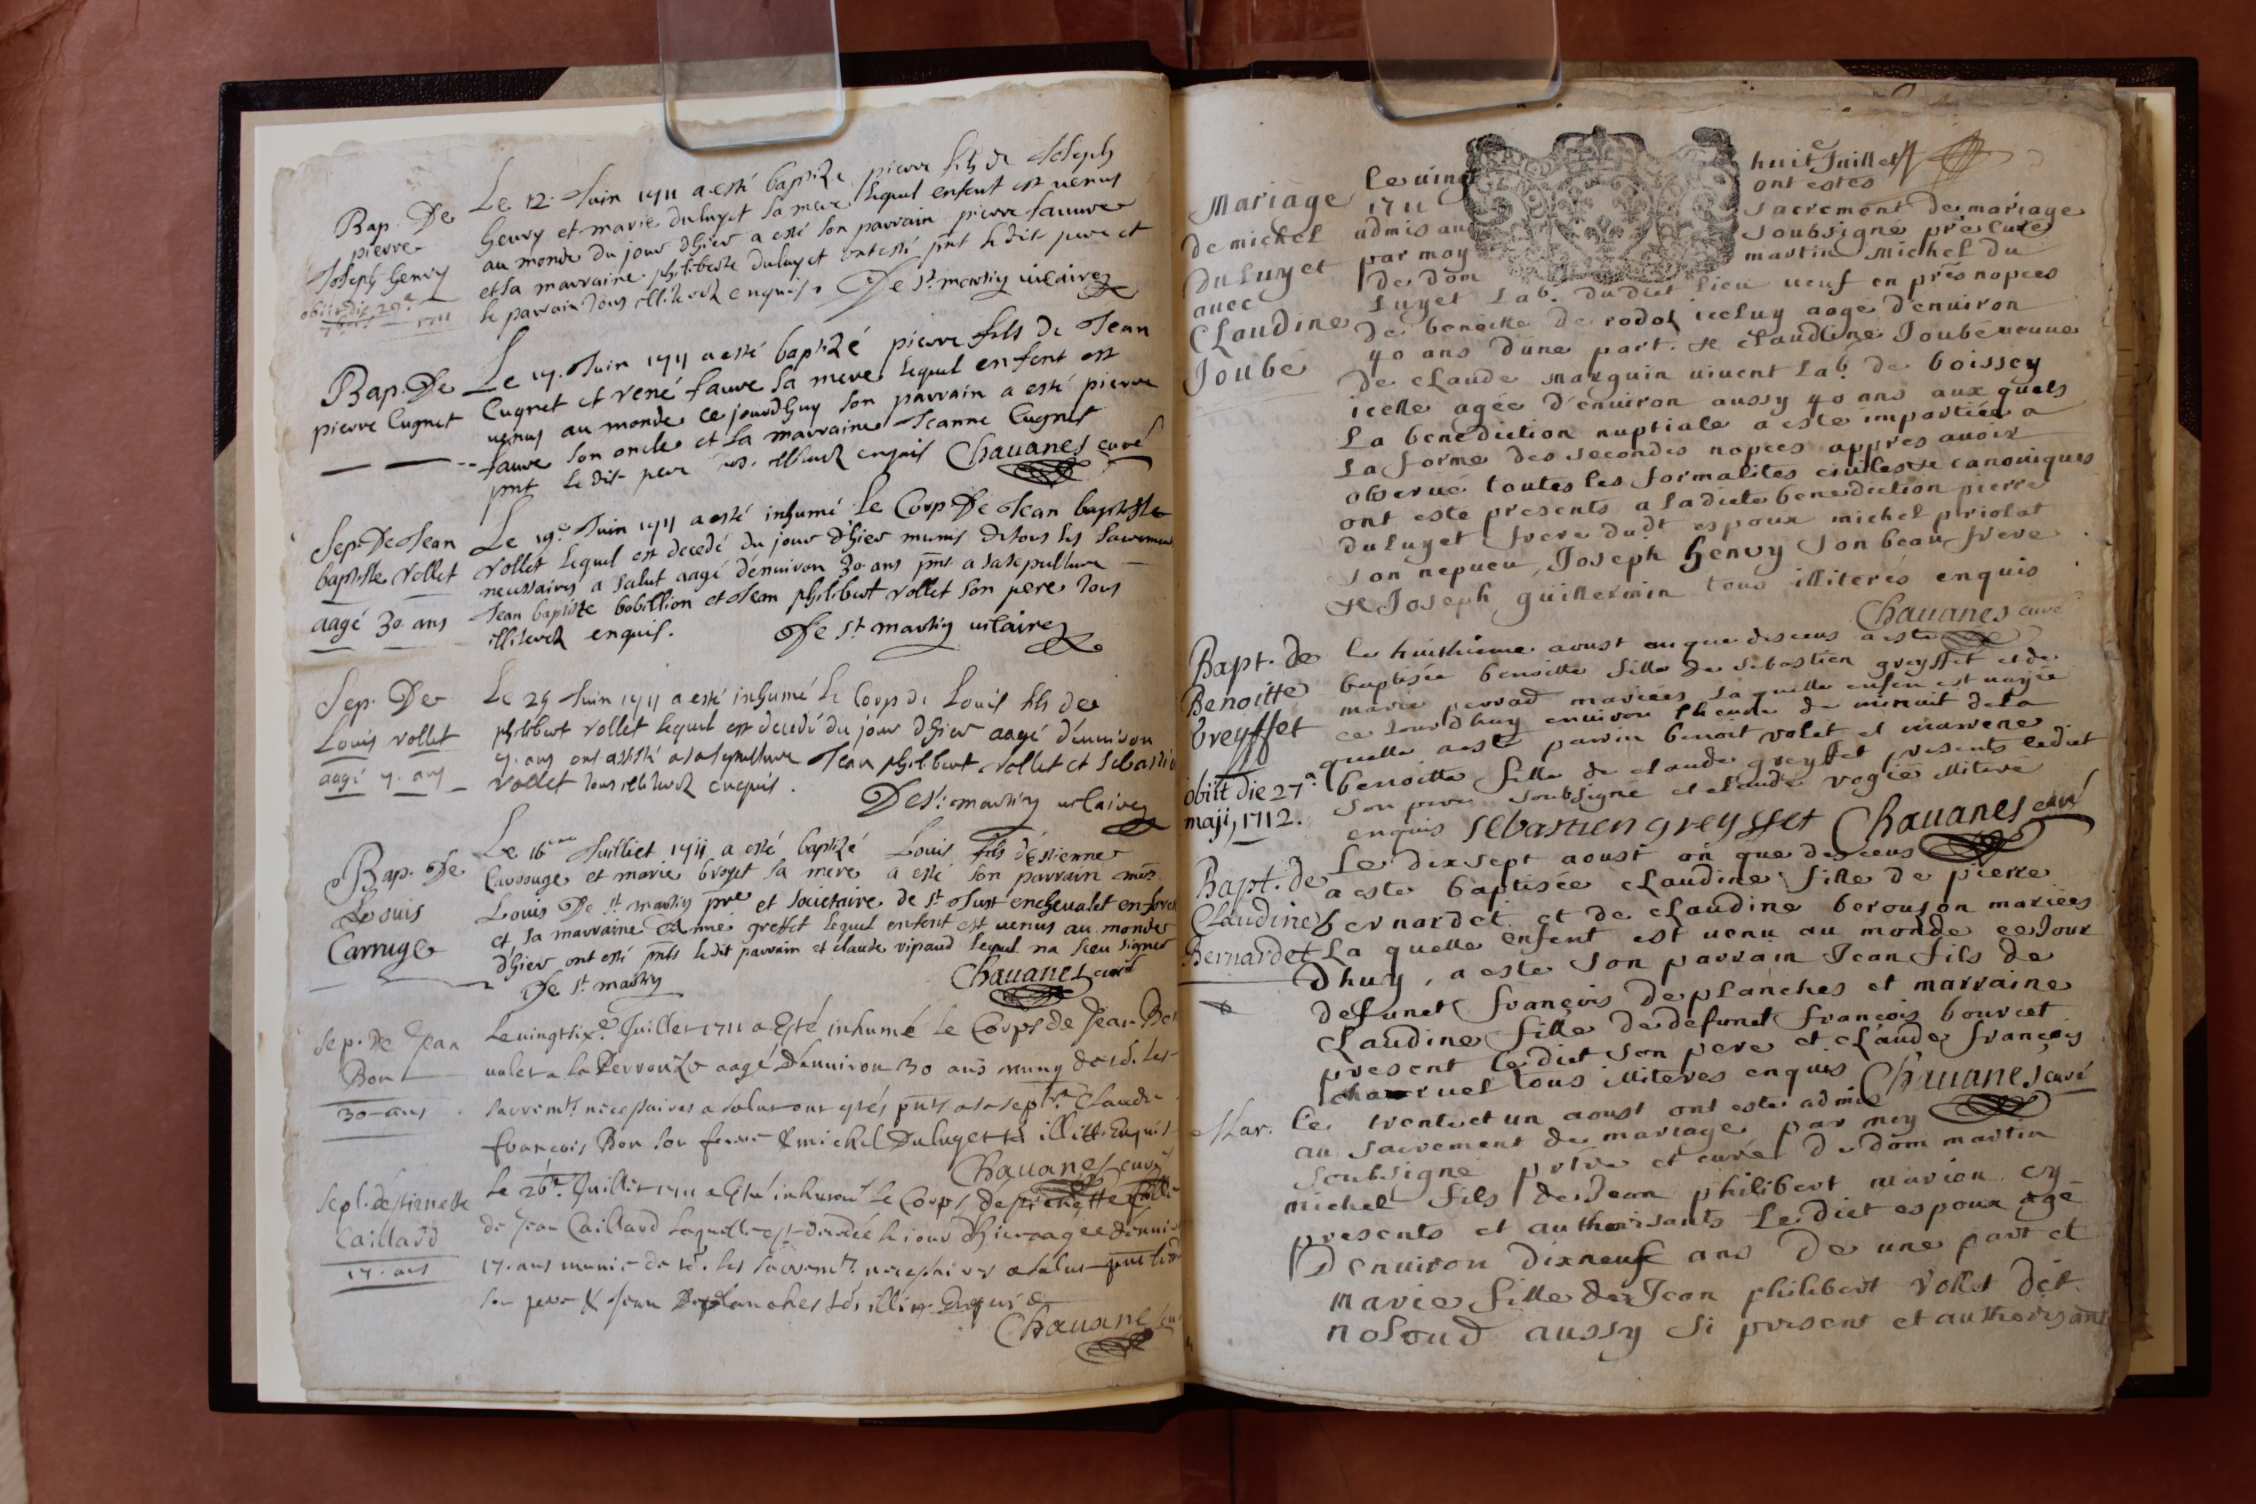 Bap. De
pierre
Joseph Genvy
obiit die 29a
1711
Le 12. Juin 1711 a esté baptizé pierre fils de Joseph
Genvy et marie duluyet sa mere lequel enfent est venus
au monde du jour d'hier a esté son parrain pierre fauvre
et sa marraine philiberte duluyet ont esté pnt le dit pere et
le parrain tous illiterez enquis. De st martin vicaire
Bap. De
pierre Cugnet
Le 17. Juin 1711 a esté baptizé pierre fils de Jean
Cugnet et rené fauve sa mere lequel enfent est
venus au monde ce jourdhuy son parrain a esté pierre
fauve son oncle et la marraine Jeanne Cugnet
pnt le dit pere illiterez enquis Chauanes curé
Sep. De Jean
baptiste Vollet
aagé 30 ans
Le 19e Juin 1711 a esté inhumé Le Corp De Jean baptiste
Vollet lequel est decedé du jour d'hier munis de tous les sacremens
necessaires a salut aagé d'enuiron 30 ans pnt a sa sepulture
Jean baptiste bobillion et Jean philibert vollet son pere tous
illiterez enquis. De st martin vicaire
Sep. De
Louis vollet
aagé 9. ans
Le 25 Juin 1711 a esté inhumé le Corp de Louis fils de
philibert vollet lequel est decedé du jour d'hier aagé d'enuiron
9. ans ont assisté a sa sepulture Jean philibert vollet et Sebastie
vollet tous illiterez enquis.
De st. martin vicaire
Bap. De
Louis
Carruge
Le 16eme Juilliet 1711 a esté baptizé Louis fils d'estienne
Carrouge et marie broyet sa mere a esté son parrain mre
Louis De st martin pre et societaire de st Just en chevalet en fores
et sa marraine greffet lequel enfent est venus au monde
d'hier ont esté pnts le dit parrain et claude ripaud lequel na sceu signer
De st martin Chauanes curé
Sep. De Jean
Bon
30 ans
Le vingtsixe Juillet 1711 a Esté inhumé le Corps de Jean Bon
valet a la aagé d'enuiron 30 ans muny de ts. les
sacremts. necessaires a salut ont estés pnts a sa sepre. Claude
françois Bon son frere & michel Duluyet ts illitt. Enquis
Chauanes curé
Sepl. d'estiennette
Caillard
17. ans
Le 26e. Juillet 1711 a Esté inhumé le Corps d'estiennette fille
de Jean Caillard laquelle est decedée le jour d'hier aagée d'enui
17. ans munie de ts. les sacremts. necessaires a salut pnt ledt
son pere & Jean Desplanches ts illitt. Enquis
Chauanes cu
Mariage
de michel
Duluyet
auec
CLaudine
Joubé
le vingt huit Juillet
1711 ont estés
admis au sacrement de mariage
par moy soubsigné pretre curé
de dom martin Michel du
Luyet Lab. dudict lieu veuf en pres nopces
de benoitte De rodot iceluy aagé d'enuiron
40 ans d'une part. & claudine Joube veuue
de cLaude marguin viuent Lab. de boissey
icelle agée d'enuiron aussy 40 ans aux quels
La benediction nuptiale a esté impartiée a
La forme des secondes nopces appres auoir
obserué toutes les formalites ciuiles & canoniques
ont esté presents a ladicte benediction pierre
duluyet frere dudt espoux michel priolat
son nepueu, Joseph Genvy son beau frere
& Joseph guillermin tous illiterés enquis
Chauanes curé
Bapt. de
Benoitte
Greyffet
obiit die 27a
maji, 1712.
le huithieme aoust an que dessus a esté
baptisée benoitte fille de sebastien greyffet et de
marie perrad mariees laquelle enfen est nayée
ce iourdhuy enuiron lheure de minuit de la
quelle a esté parrin benoit volet et marrene
benoitte fille de claude greyffet presents ledict
son pere soubsigné et claude vogie illiteré
enquis sebastien greysset Chauanes curé
Bapt. de
CLaudine
Bernardet
Le dix sept aoust an que dessus
a esté baptisée cLaudine fille de pierre
bernardet et de cLaudine berouson mariées
La quelle enfent est venu au monde ce Jour
Dhuy, a esté son parrain Jean fils de
defunct françois deplanches et marraine
cLaudine fille de defunct françois bourcet
present ledict son pere et cLaude françois
charuel tous illiteres enquis Chauanes curé
Mar.
le trente et un aoust ont esté admis
au sacrement de mariage par moy
soubsigné prtre et curé de dom martin
michel fils de Jean philibert marion cy
presents et authorisants Ledict espoux agé
D'enuiron dixneuf ans de une part et
marie fille de Jean philibert vollet dét
noloud aussy si present et authorisant